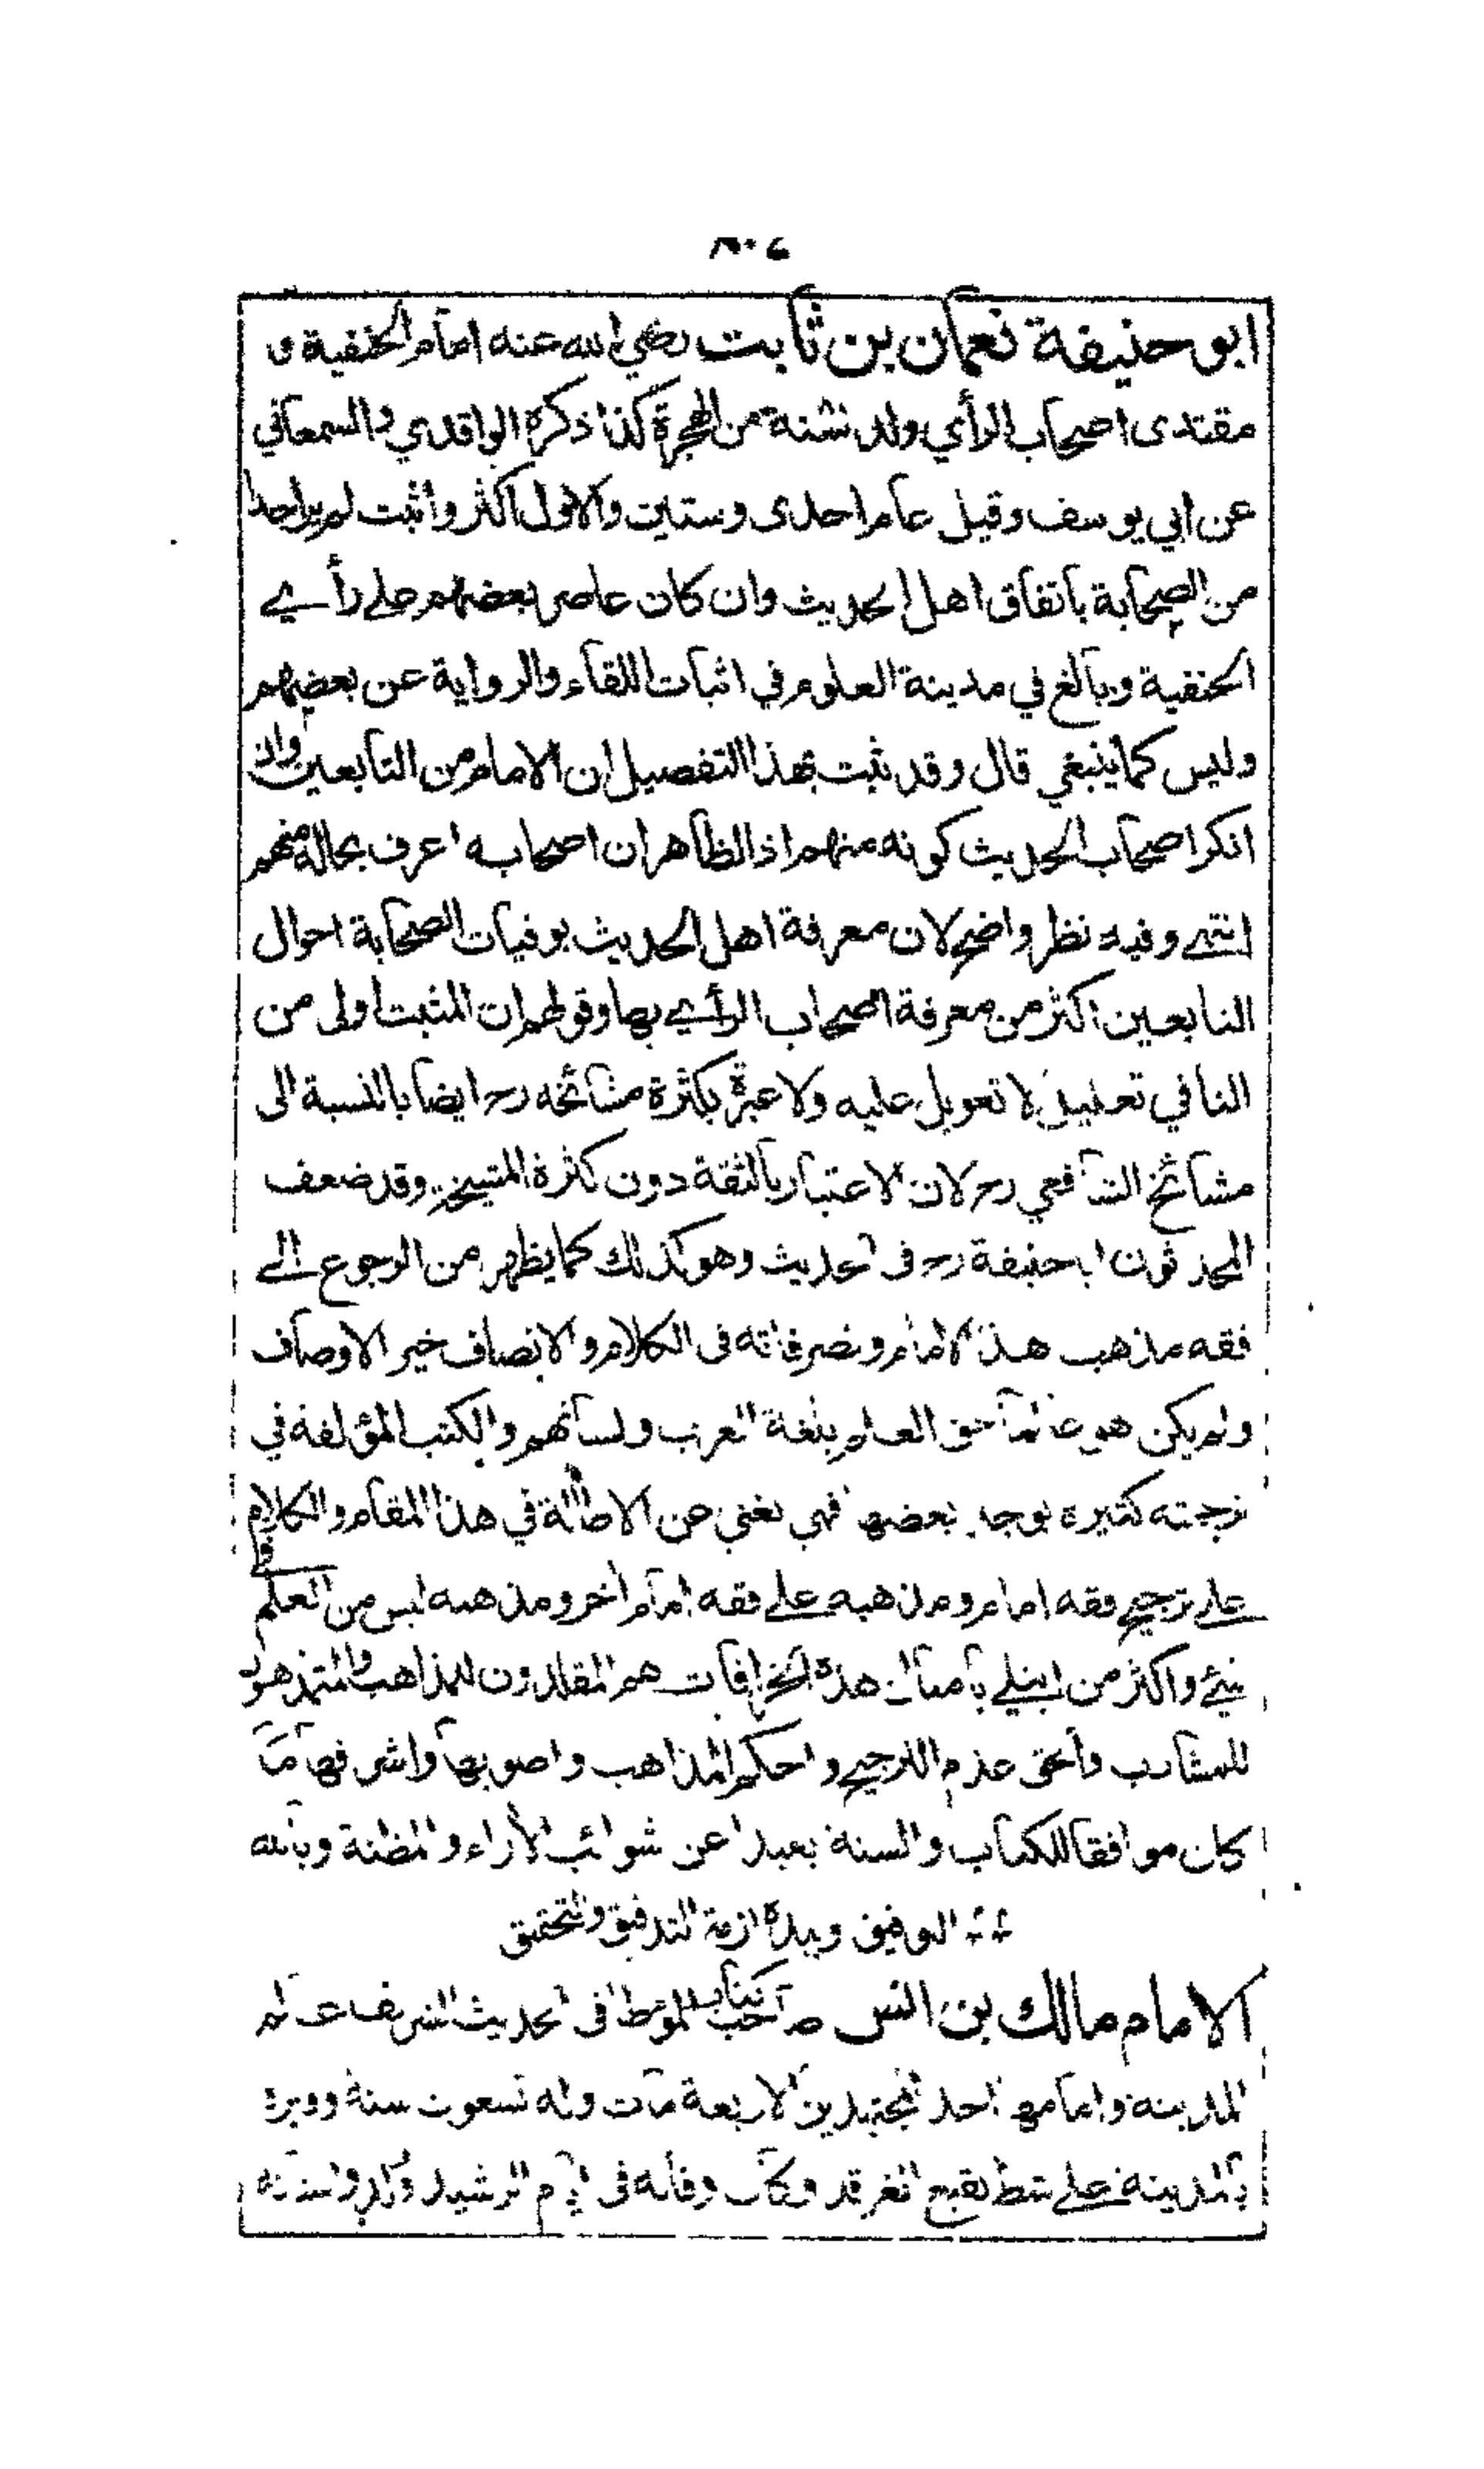 ابو حنيفة نعمان بن ثابت رضي الله عنه امام الحنفية و
مقتدى اصحاب الرأي ولد سنة من الهجرة كذا ذكره الواقدي والسمعاني
عن ابي يوسف وقيل عام احدى وستين والاول اكثر واثبت لم ير احدا
من الصحابة باتفاق اهل الحديث وان كان عاصر بعضهم على رأي
الحنفية وبالغ في مدينة العلوم في اثبات اللقاء والرواية عن بعضهم
وليس كما ينبغي قال وقد ثبت بهذا التفصيل ان الامام من التابعين وان
انكر اصحاب الحديث كونه منهم اذ الظاهر ان اصحابه اعرف بحاله منهم
انتهى وفيه نظر واضح لان معرفة اهل الحديث بوفيات الصحابة احوال
التابعين اكثر من معرفة اصحاب الرأي بها وقولهم ان المثبت اولى من
النافي تعليل لا تعويل عليه ولا عبرة بكثرة مشائخه رح ايضا بالنسبة الى
مشائخ الشافعي رح لان الاعتبار بالثقة دون كثرة المشيخة وقد ضعف
المحدثون ابا حنيفة رح في الحديث وهو كذلك كما يظهر من الرجوع الى
فقه مذهب هذا الامام وتصرفاته في الكلام والانصاف خير الاوصاف
ولم يكن هو عالما حق العلم بلغة العرب ولسانهم والكتب المؤلفة في
ترجمته كثيرة يوجد بعضها فهي تغني عن الاطالة في هذا المقام والكلام
على ترجيح فقه امام ومذهبه على فقه امام اخر ومذهبه ليس من العلم في
شيء واكثر من ابتلي بأمثال هذه الخرافات هم المقلدون للمذاهب والمتمذهون
للمشارب والحق عدم الترجيح واحكم المذاهب واصوبها واشرفها ما
كان موافقا للكتاب والسنة بعيدا عن شوائب الأراء والمظنة وبالله
التوفيق وبيده ازمة التدقيق والتحقيق
الامام مالك بن انس صاحب كتاب الموطا في الحديث الشريف عالم
المدينة وامامها احد المجتهدين الاربعة مات وله تسعون سنة وقبره
بالمدينة على شط بقيع الغرقد وكان وفاته في ايام الرشيد